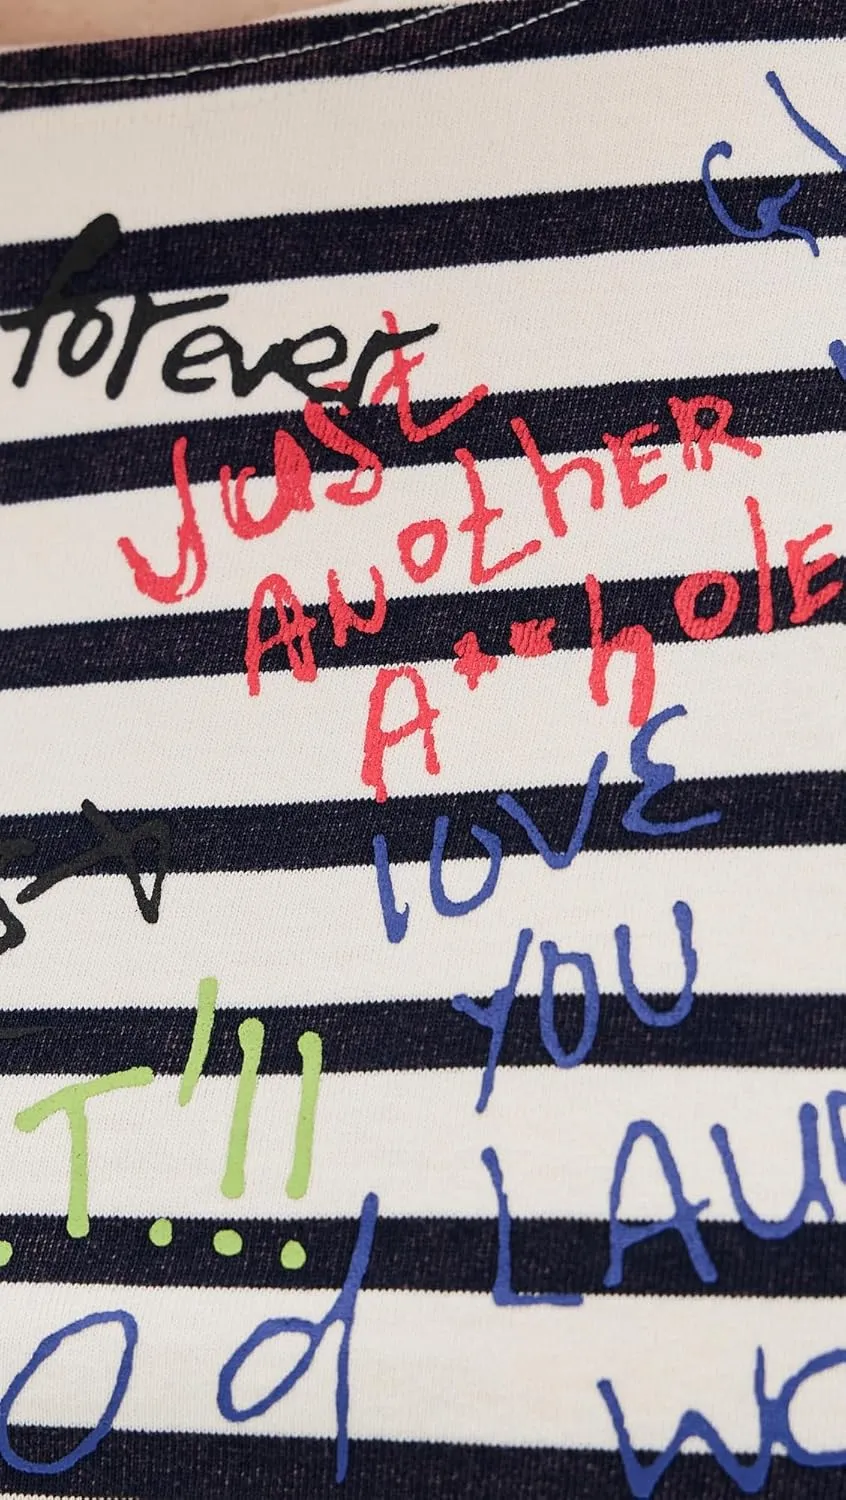 forever
Just
ANOthER
A**hOlE
lOVE
YOU
T!!!
LAU
Od
WO